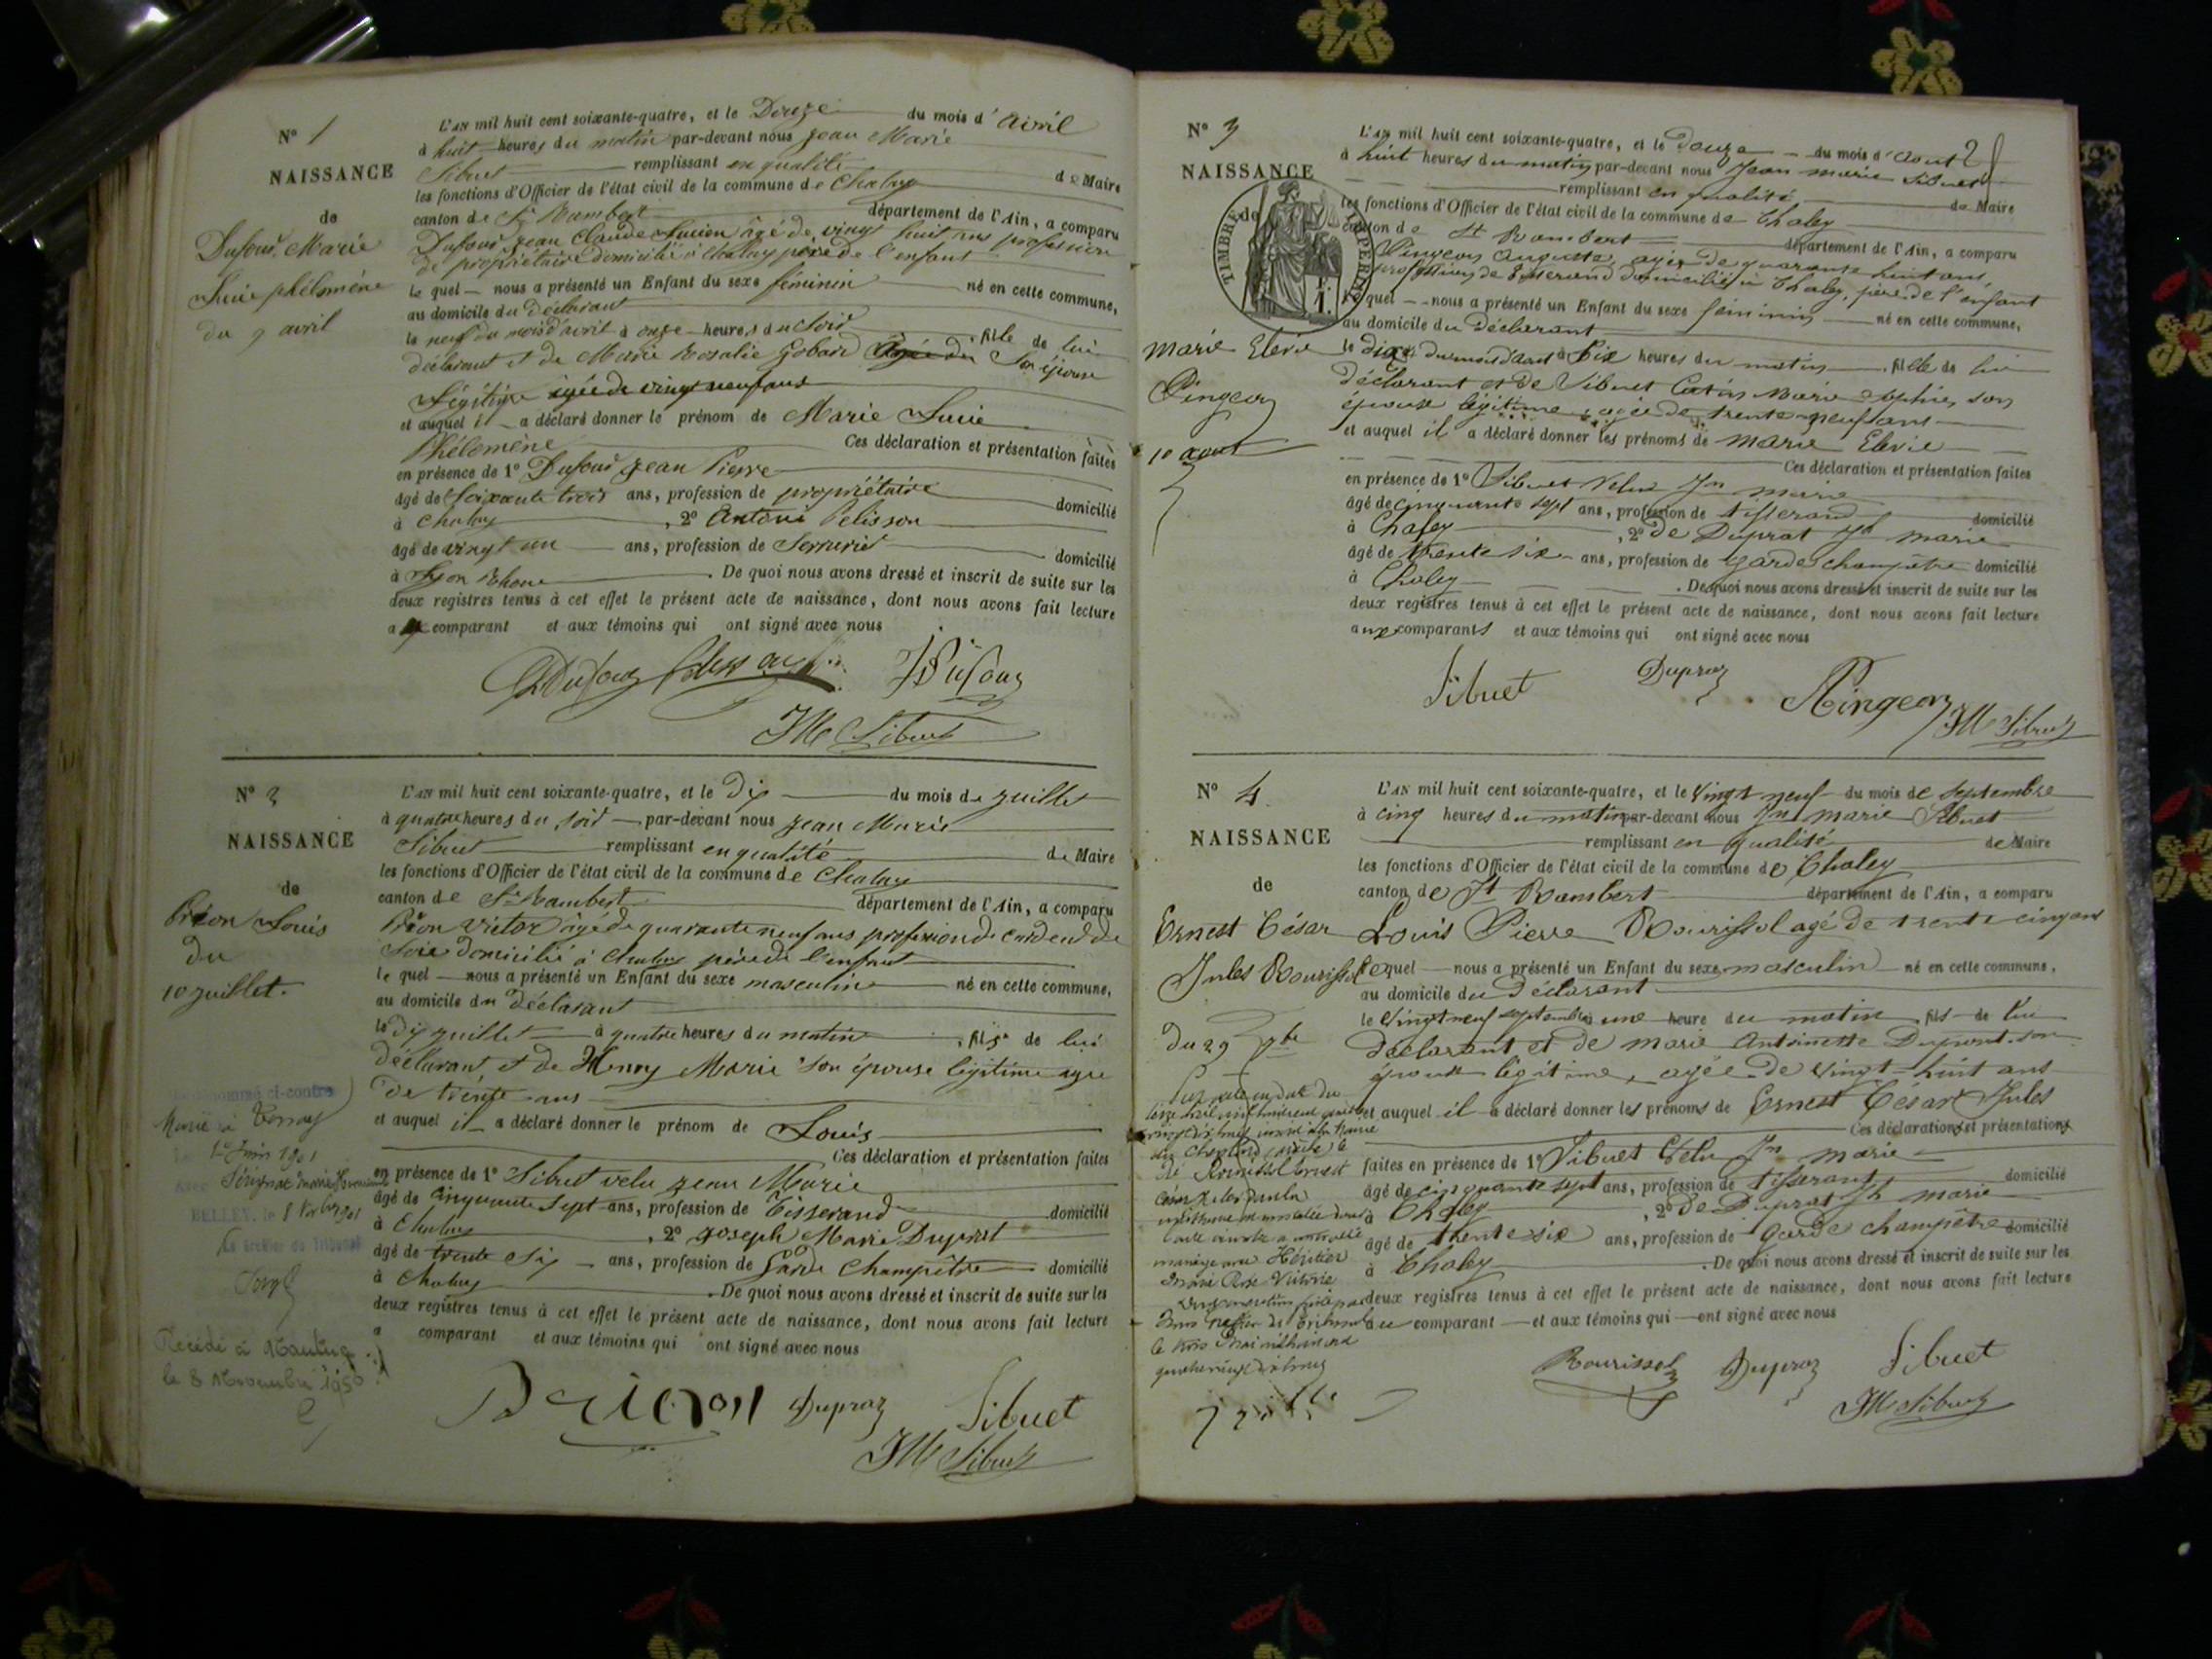 N° 1
NAISSANCE
de
Dufour Marie
Lucie phélomène
du 9 avril
L'AN mil huit cent soixante-quatre, et le Douze du mois d'avril
à huit heures du matin par-devant nous Jean Marie
Sibuet remplissant en qualité de Maire
les fonctions d'Officier de l'état civil de la commune de Chaley
canton de St Rambert département de l'Ain, a comparu
Dufour Jean Claude Lucien âgé de vingt huit ans profession
de propriétaire domicilié à Chaley père de l'enfant
le quel nous a présenté un Enfant du sexe féminin né en cette commune,
au domicile du déclarant
le neuf du mois d'avril à onze heures du soir fille de lui
déclarant et de Marie Rosalie Gobard son épouse
Légitime âgée de vingt neuf ans
et auquel il a déclaré donner le prénom de Marie Lucie
Phélomène Ces déclaration et présentation faites
en présence de 1° Dufour Jean Pierre
âgé de soixante trois ans, profession de propriétaire domicilié
à Chaley, 2° Antoine Pelisson
âgé de vingt un ans, profession de Serrurier domicilié
à Lyon Rhone. De quoi nous avons dressé et inscrit de suite sur les
deux registres tenus à cet effet le présent acte de naissance, dont nous avons fait lecture
a comparant et aux témoins qui ont signé avec nous
Dufour
JM Sibuet
N° 2
NAISSANCE
de
Prèon Louis
du
10 juillet.
L'AN mil huit cent soixante-quatre, et le Dix du mois de juillet
à quatre heures du soir par-devant nous Jean Marie
Sibuet remplissant en qualité de Maire
les fonctions d'Officier de l'état civil de la commune de Chaley
canton de St Rambert département de l'Ain, a comparu
Prèon Victor âgé de quarante neuf ans profession de cardeur de
soie domicilié à Chaley père de l'enfant
le quel nous a présenté un Enfant du sexe masculin né en cette commune,
au domicile du déclarant
le dix juillet à quatre heures du matin, fils de lui
déclarant et de Henry Marie son épouse légitime agée
de trente ans
et auquel il a déclaré donner le prénom de Louis
Ces déclaration et présentation faites
en présence de 1° Sibuet velu Jean Marie
âgé de cinquante sept ans, profession de Tisserand domicilié
à Chaley, 2° Joseph Marie Duprat
âgé de trente six ans, profession de Garde Champêtre domicilié
à Chaley. De quoi nous avons dressé et inscrit de suite sur les
deux registres tenus à cet effet le présent acte de naissance, dont nous avons fait lecture
a comparant et aux témoins qui ont signé avec nous
Dupraz Sibuet
JM Sibuet
ci-contre
Marié à
1er Juin 1901
BELLEY, le 8
Le Greffier du Tribunal
Décédé à
le 8 Novembre 1950
N° 3
NAISSANCE
de
TIMBRE IMPERIAL
Marie Elevie
Pingeon
10 aout
L'AN mil huit cent soixante-quatre, et le douze du mois d'aout
à huit heures du matin par-devant nous Jean marie Sibuet
remplissant en qualité de Maire
les fonctions d'Officier de l'état civil de la commune de Chaley
canton de St Rambert département de l'Ain, a comparu
Pingeon Auguste, agé de quarante huit ans,
profession de Tisserand domicilié à Chaley, père de l'enfant
lequel nous a présenté un Enfant du sexe féminin né en cette commune,
au domicile du déclarant
le dix du mois d'aout à six heures du matin, fille de lui
déclarant et de Sibuet Catin Marie Sophie, son
épouse légitime, agée de trente neuf ans
et auquel il a déclaré donner les prénoms de Marie Elevie
Ces déclaration et présentation faites
en présence de 1° Sibuet Velu Jn marie
âgé de cinquante sept ans, profession de tisserand domicilié
à Chaley, 2° de Duprat Jh marie
âgé de trente six ans, profession de garde champêtre domicilié
à Chaley. De quoi nous avons dressé et inscrit de suite sur les
deux registres tenus à cet effet le présent acte de naissance, dont nous avons fait lecture
aux comparants et aux témoins qui ont signé avec nous
Sibuet Dupraz Pingeon
JM Sibuet
N° 4
NAISSANCE
de
Ernest César
Jules Rourissol
du 29 7bre
L'AN mil huit cent soixante-quatre, et le vingt neuf du mois de septembre
à cinq heures du matin par-devant nous Jn marie Sibuet
remplissant en qualité de Maire
les fonctions d'Officier de l'état civil de la commune de Chaley
canton de St Rambert département de l'Ain, a comparu
Louis Pierre Rourissol agé de trente cinq ans
lequel nous a présenté un Enfant du sexe masculin né en cette commune,
au domicile du Déclarant
le vingt neuf septembre à une heure du matin fils de lui
déclarant et de marie Antoinette Dupont son
épouse légitime, agée de vingt-huit ans
et auquel il a déclaré donner les prénoms de Ernest César Jules
Ces déclarations et présentations
faites en présence de 1° Sibuet Velu Jn marie
âgé de cinquante sept ans, profession de tisserant domicilié
à Chaley, 2° de Duprat Jh marie
âgé de trente six ans, profession de garde champêtre domicilié
à Chaley. De quoi nous avons dressé et inscrit de suite sur les
deux registres tenus à cet effet le présent acte de naissance, dont nous avons fait lecture
au comparant et aux témoins qui ont signé avec nous
Rourissol Dupraz Sibuet
JM Sibuet
de Rourissol Ernest
mariage avec Héritier
Marie Rose Victorie